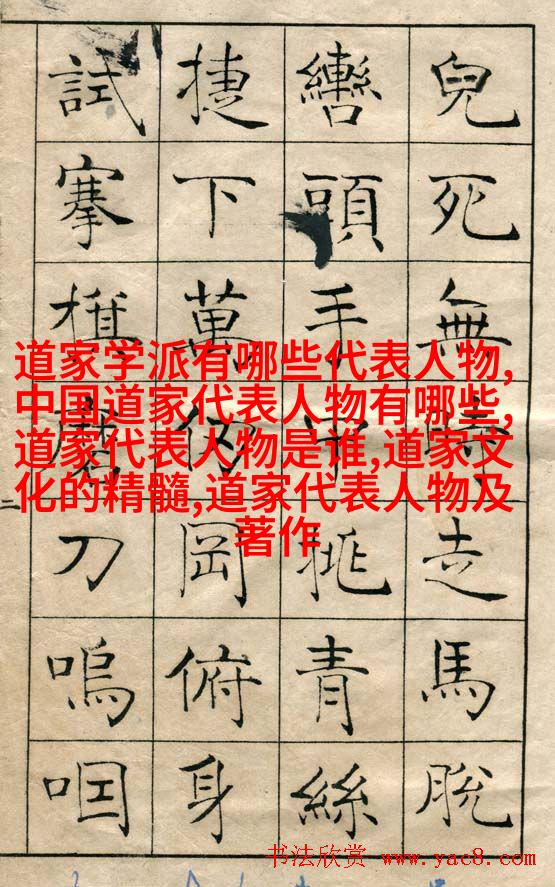 兒死無時走馬脫
轡頭手中挑青絲
捷下萬仞岡俯身
試搴旗磨刀嗚咽
道家学派有哪些代表人物,
中国道家代表人物有哪些,
道家代表人物是谁,道家文
化的精髓,道家代表人物及
著作
书法欣赏 www.yac8.com